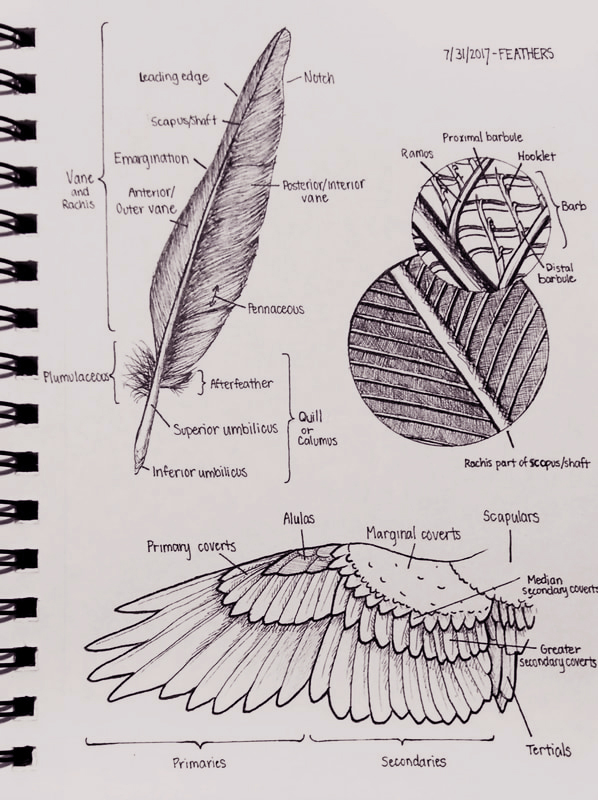 7/31/2017-FEATHERS
Leading edge
Notch
Scapus/Shaft
Emargination
Vane
and
Rachis
Anterior/
Outer vane
Posterior/Interior
vane
Pennaceous
Plumulaceous
Afterfeather
Superior umbilicus
Quill
or
Calumus
Inferior umbilicus
Proximal barbule
Ramos
Hooklet
Barb
Distal
barbule
Rachis part of scopus/shaft
Alulas
Scapulars
Marginal coverts
Primary coverts
Median
secondary coverts
Greater
secondary coverts
Tertials
Primaries
Secondaries